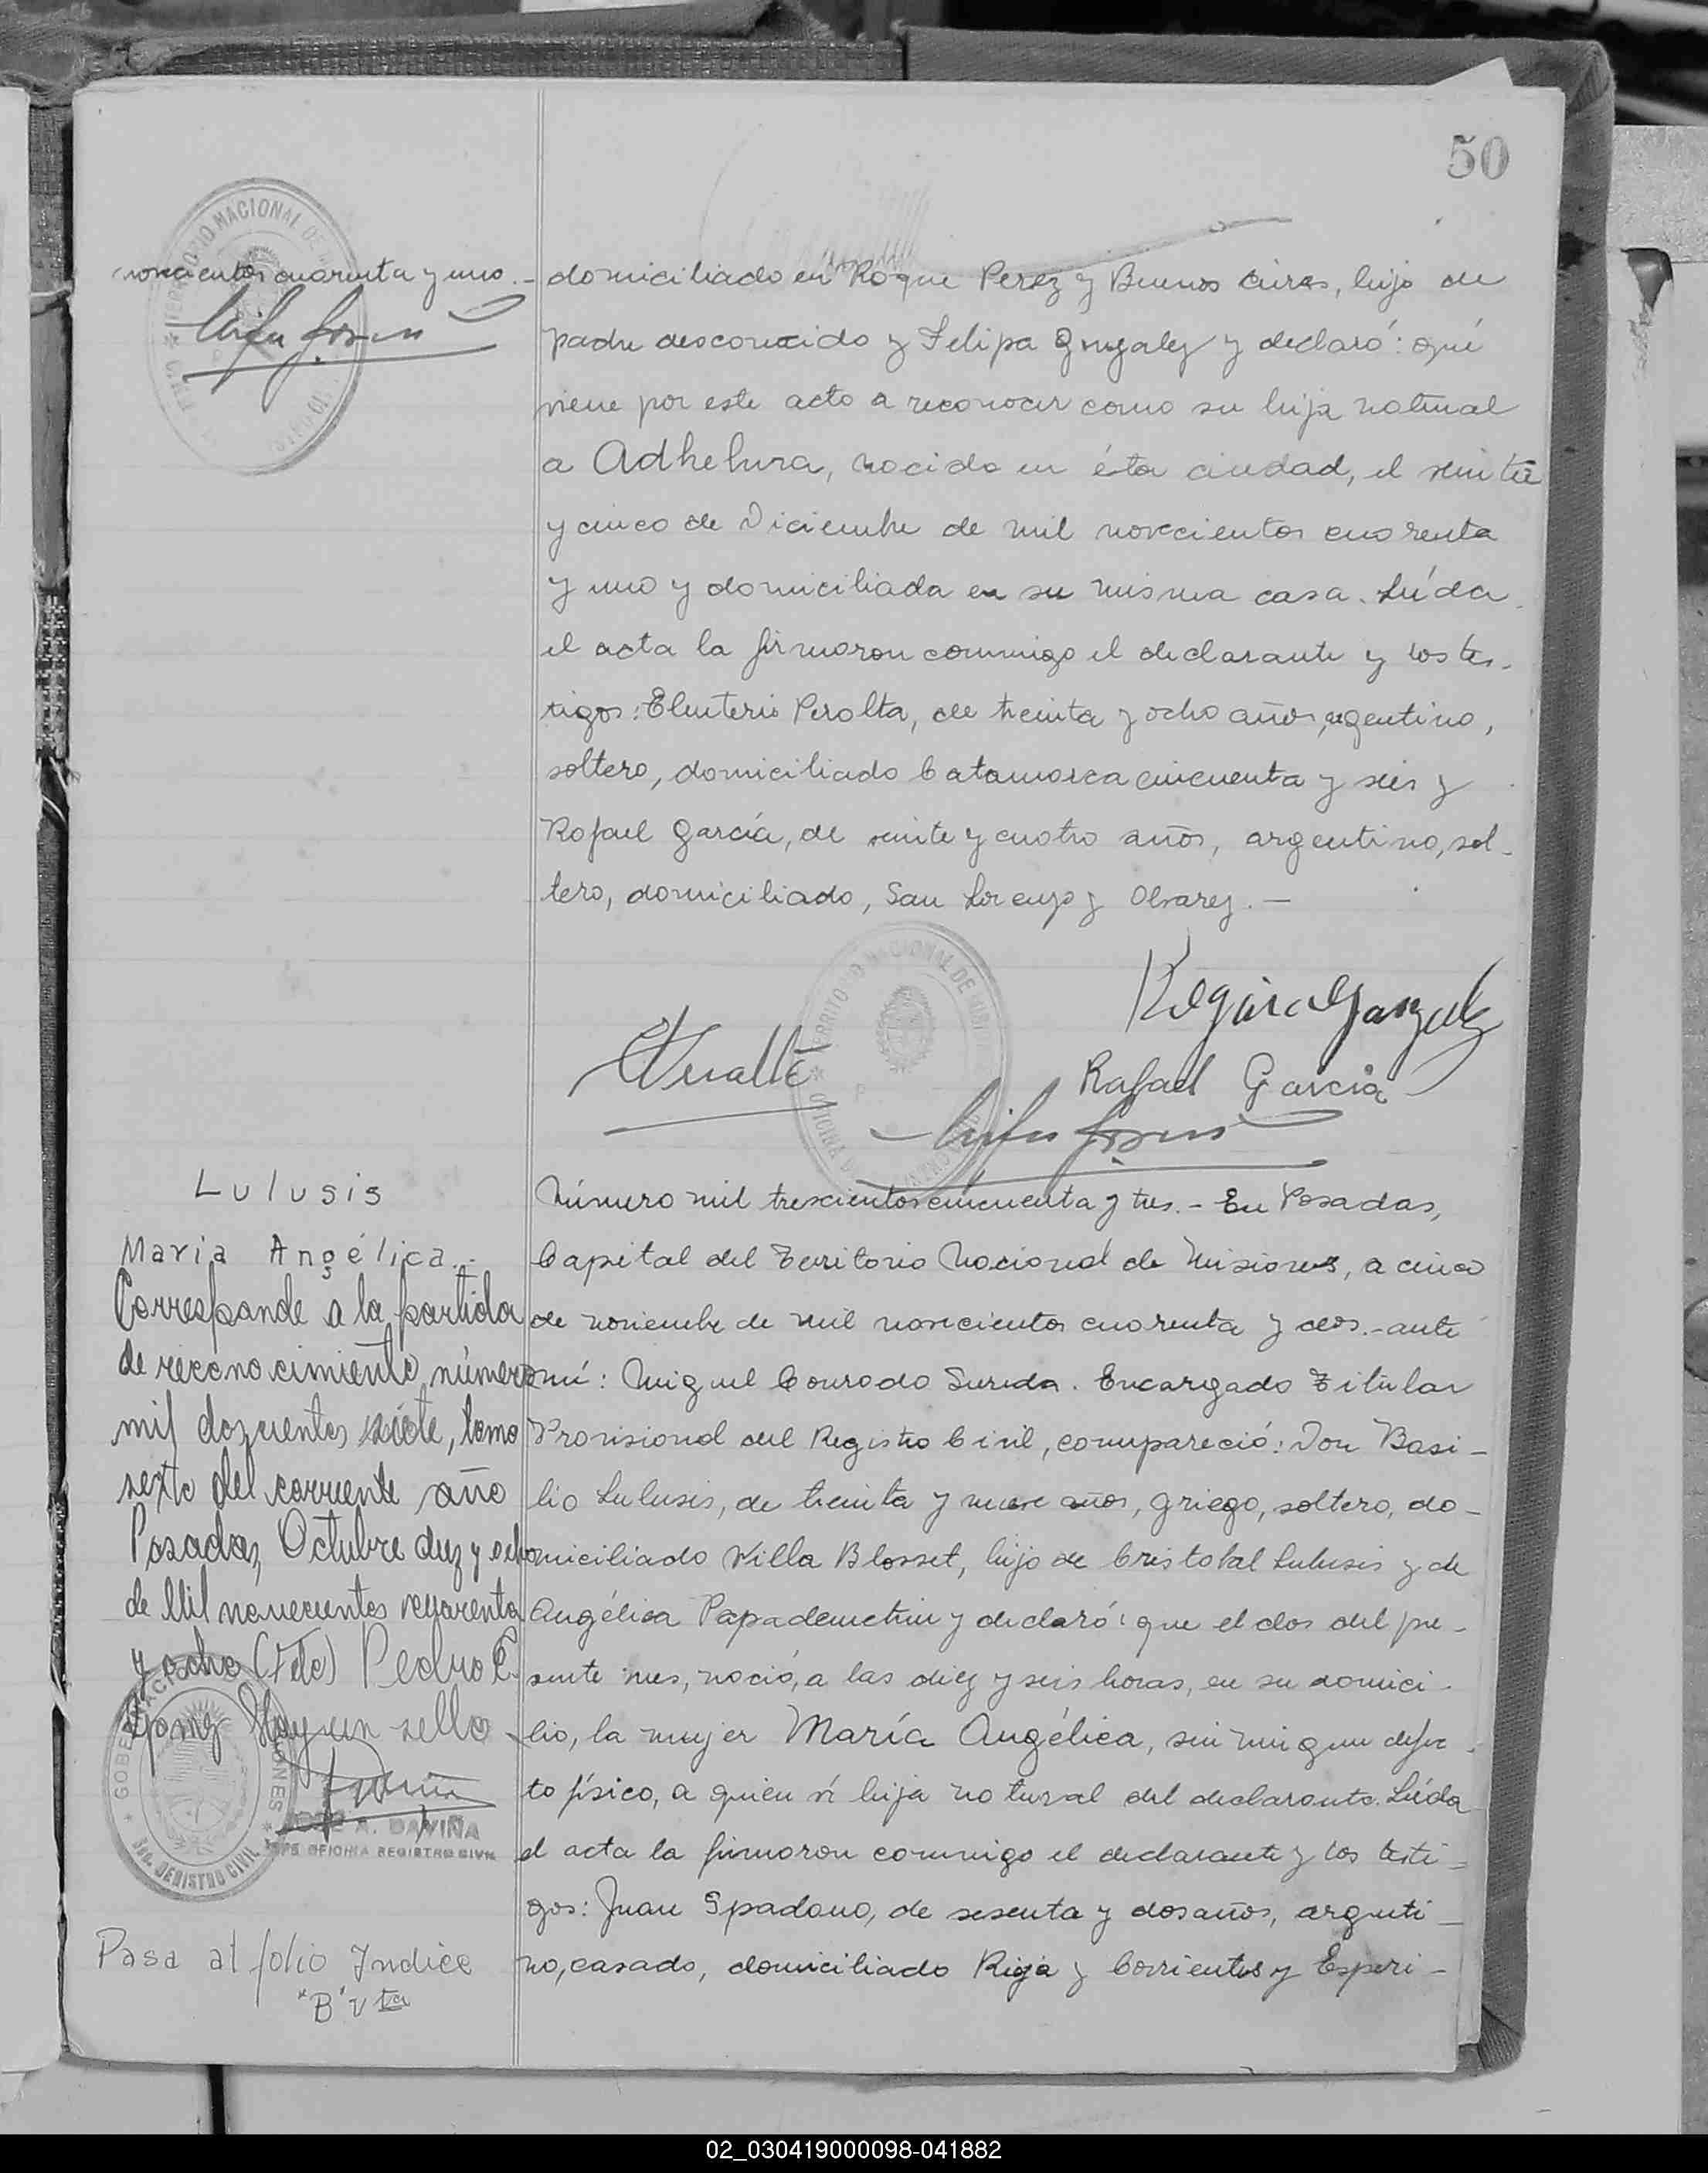 50
novecientos cuarenta y uno.-
domiciliado en Roque Perez y Buenos Aires, hijo de
padre desconocido y Felipa Gonzalez y declaró: qué
viene por este acto a reconocer como su hija natural
a Adhelma, nacida en ésta ciudad, el veinte
y cinco de Diciembre de mil novecientos cuarenta
y uno y domiciliada en su misma casa. Leída
el acta la firmaron conmigo el declarante y los tes-
tigos: Eleuterio Peralta, de treinta y ocho años, argentino,
soltero, domiciliado Catamarca cincuenta y seis y
Rafael García, de veinte y cuatro años, argentino, sol-
tero, domiciliado, San Lorenzo y Alvarez. -
Rafael Garcia
Lulusis
Maria Angélica.-
Corresponde a la partida
de reconocimiento, número
mil doscientos siete, tomo
sexto del corriente año
Posadas, Octubre diez y ocho
de Mil novecientos cuarenta
y ocho (Fdo) Pedro E.
Gomez Hay un sello
JOSE A. DAVIÑA
JEFE OFICINA REGISTRO CIVIL
GOBERNACION MISIONES
REGISTRO CIVIL
Pasa al folio Indice
"B" vta
Número mil trescientos cincuenta y tres.- En Posadas,
Capital del Territorio Nacional de Misiones, a cinco
de noviembre de mil novecientos cuarenta y dos.- ante
mí: Miguel Conrado Sureda. Encargado Titular
Provisional del Registro Civil, compareció: Don Basi-
lio Lulusis, de treinta y nueve años, griego, soltero, do-
miciliado Villa Blosset, hijo de Cristobal Lulusis y de
Angélica Papademetriu y declaró: que el dos del pre-
sente mes, nació, a las diez y seis horas, en su domici-
lio, la mujer María Angélica, sin ningun defec-
to físico, a quien ví hija natural del declarante. Leída
el acta la firmaron conmigo el declarante y los testi-
gos: Juan Spadano, de sesenta y dos años, argenti-
no, casado, domiciliado Rioja y Corrientes y Esperi-
02_030419000098-041882